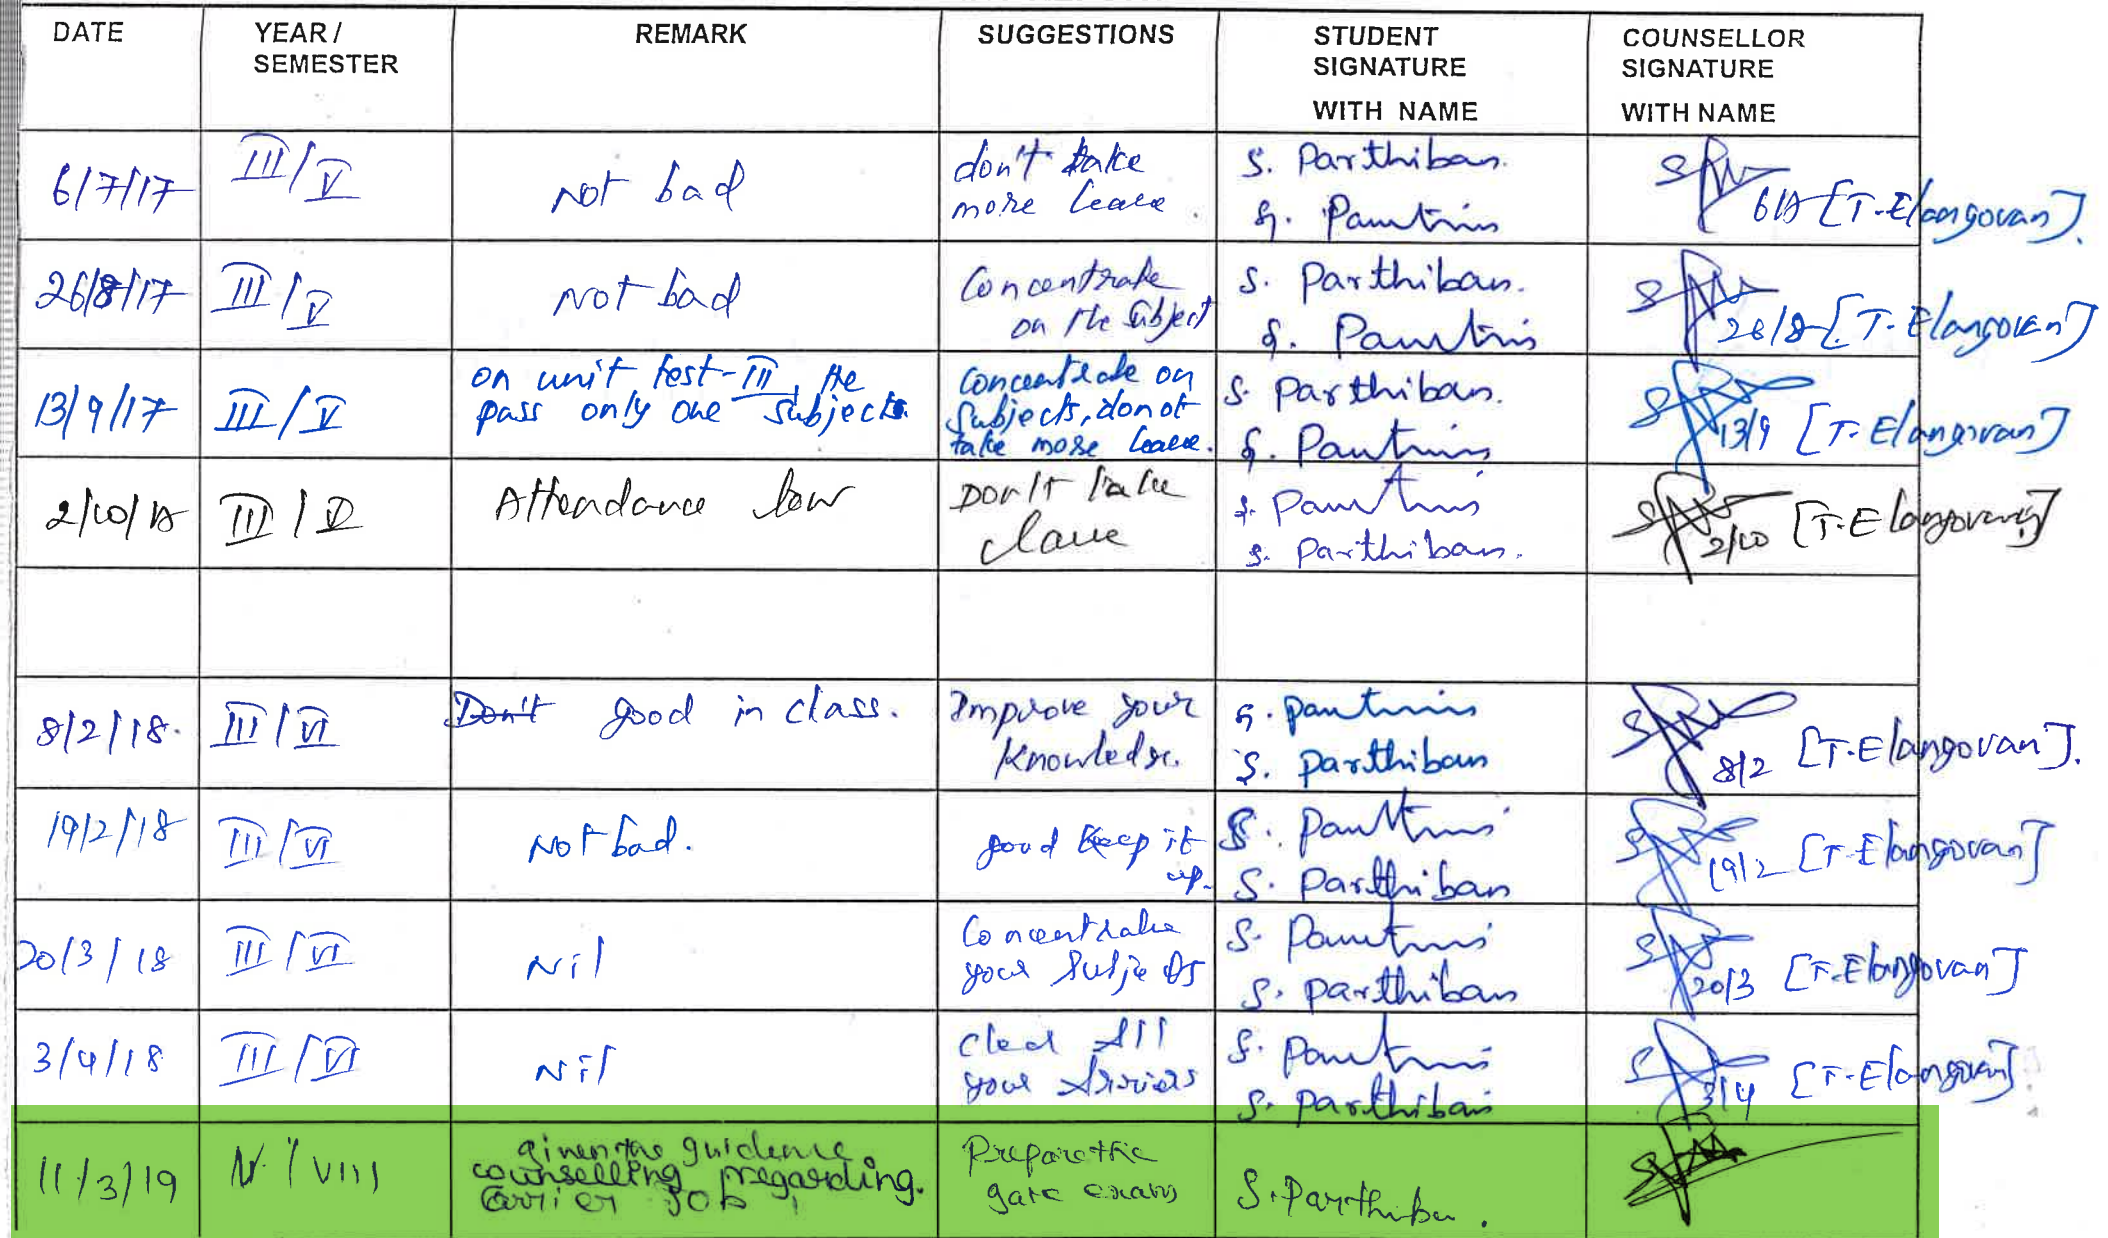 DATE
YEAR/
SEMESTER
REMARK
SUGGESTIONS
STUDENT
SIGNATURE
WITH NAME
COUNSELLOR
SIGNATURE
WITH NAME
6/7/17
III/V
Not bad
don't take
more leave.
S. Parthiban.
[T-Elangovan].
26/8/17
III/V
Not bad
Concentrate
on the subject
S. Parthiban.
26/8 [T-Elangovan]
13/9/17
III/V
on unit test-III, He
pass only one subjects.
Concentrate on
subjects, do not
take more leave.
S. Parthiban.
13/9 [T-Elangovan]
2/10/17
III/V
Attendance low
Don't take
S. Parthiban.
2/10 [T-Elangovan]
8/2/18.
III/VI
Don't good in class.
Improve your
Knowledge.
S. Parthiban
8/2 [T-Elangovan].
19/2/18
III/VI
Not bad.
good keep it
up.
S. Parthiban
19/2 [T-Elangovan]
20/3/18
III/VI
Nil
Concentrate
your Subjects
S. Parthiban
20/3 [T-Elangovan]
3/4/18
III/VI
Nil
Clear All
your Arriers
S. Parthiban
3/4 [T-Elangovan]
11/3/19
IV/VIII
given the guidence
counselling regarding.
Carrier Job
Prepare the
gate exams
S. Parthiba.